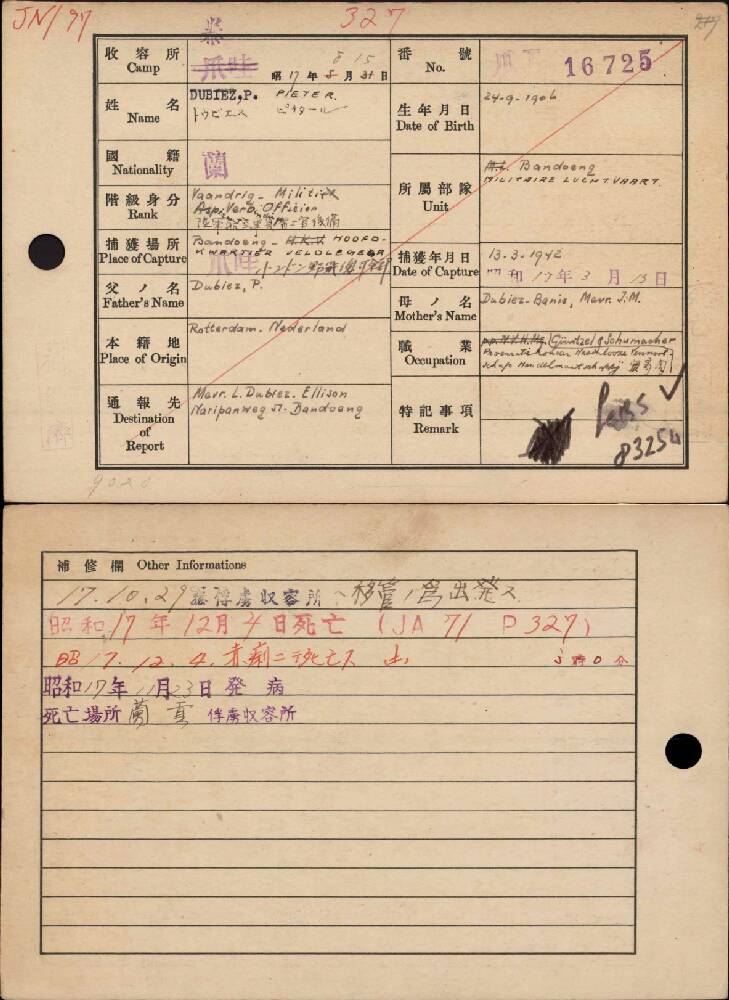 JN/97 327
収容所 Camp 爪哇 昭17年8月31日 8 15
番號 No. 爪 I 16725
姓名 Name DUBIEZ, P. PIETER.
生年月日 Date of Birth 24-9-1906
國籍 Nationality 蘭
階級身分 Rank Vaandrig - Militie
Asp. Verb. Officier
所屬部隊 Unit H.L. Bandoeng
MILITAIRE LUCHTVAART.
捕獲場所 Place of Capture Bandoeng - H.K.V. HOOFD-
KWARTIER VELDLEGER
爪哇
捕獲年月日 Date of Capture 13-3-1942
昭和17年3月13日
父ノ名 Father's Name Dubiez, P.
母ノ名 Mother's Name Dubiez-Banis, Mevr. J.M.
本籍地 Place of Origin Rotterdam. Nederland
職業 Occupation Güntzel & Schumacher
通報先 Destination of Report Mevr. L. Dubiez. Ellison
Naripanweg 57. Bandoeng
特記事項 Remark
83254
9020
補修欄 Other Informations
17.10.29 俘虜収容所ヘ移管ノ為出発ス
昭和17年12月4日死亡 (JA 71 P 327)
昭17.12.4. 赤痢ニテ死亡ス 3時0分
昭和17年11月23日発病
死亡場所 蘭貢 俘虜収容所